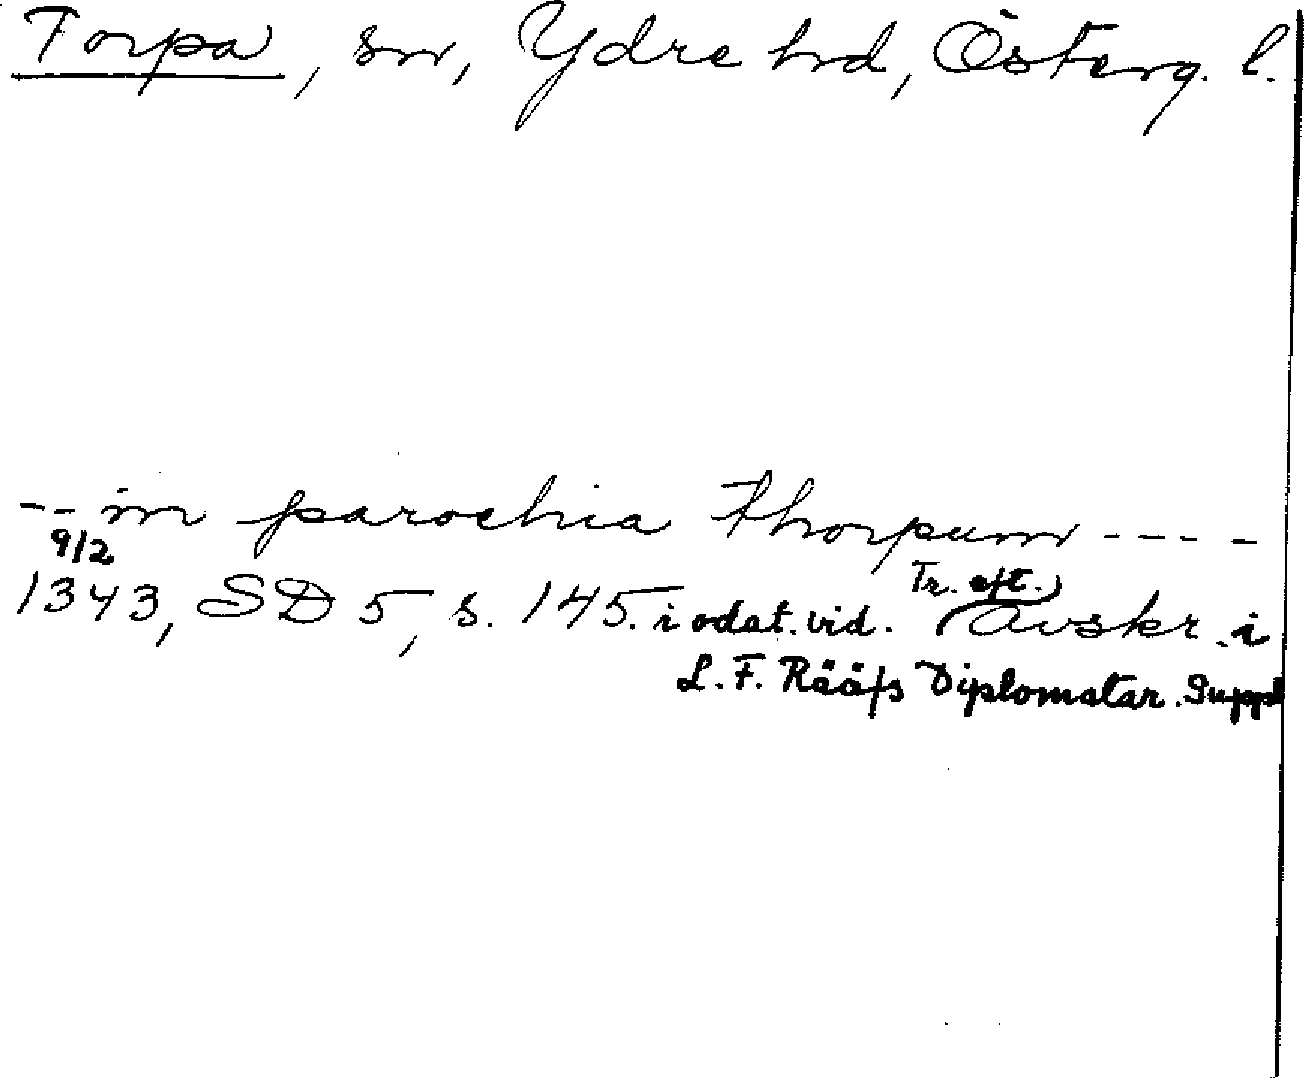 Torpa, sn, Ydre hrd, Österg. l.
-- in parochia Thorpum ----
9/2
1343, SD 5, s. 145. i odat. vid. Tr. eft. Avskr. i
L. F. Rääfs Diplomatar. Suppl